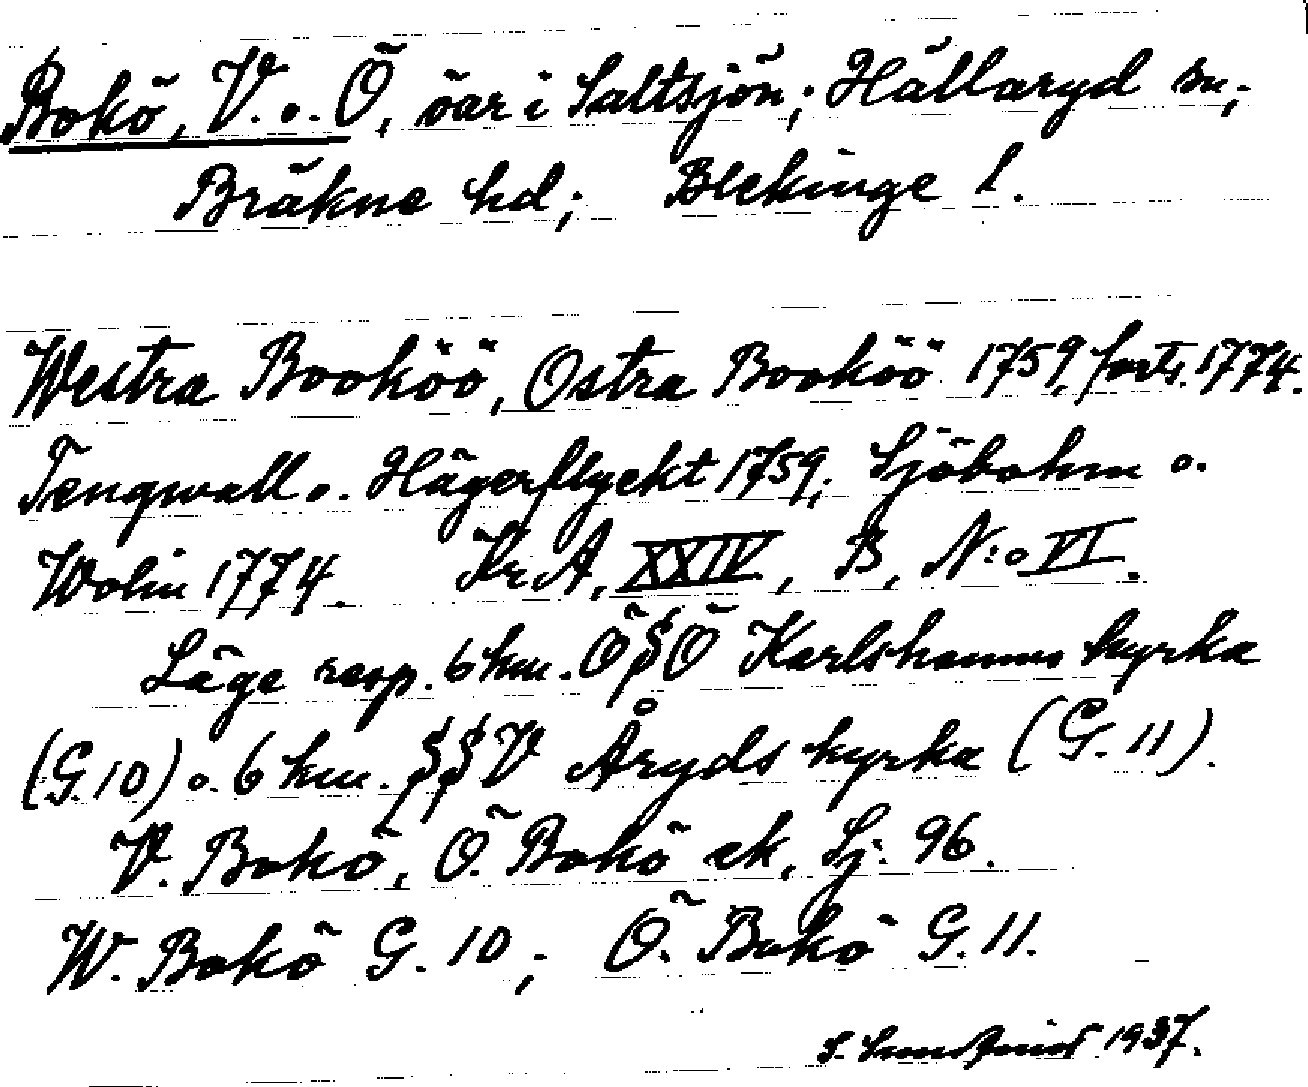 Bokö, V. o. Ö, öar i Saltsjön; Hällaryd sn;
Bräkne hd; Blekinge l.
Westra Booköö, Ostra Booköö 1759, forts. 1774.
Tengwall o. Hägerflyckt 1759; Sjöbohm o.
Wolin 1774. Kr. A, XXIV, B, N:o VI.
Läge resp. 6 km. Ö§Ö Karlshamns kyrka
(G. 10) o. 6 km. §§V Åryds kyrka (G. 11).
V. Bokö, Ö. Bokö ek, Sj. 96.
W. Bokö G. 10; Ö. Bokö G. 11.
1937.